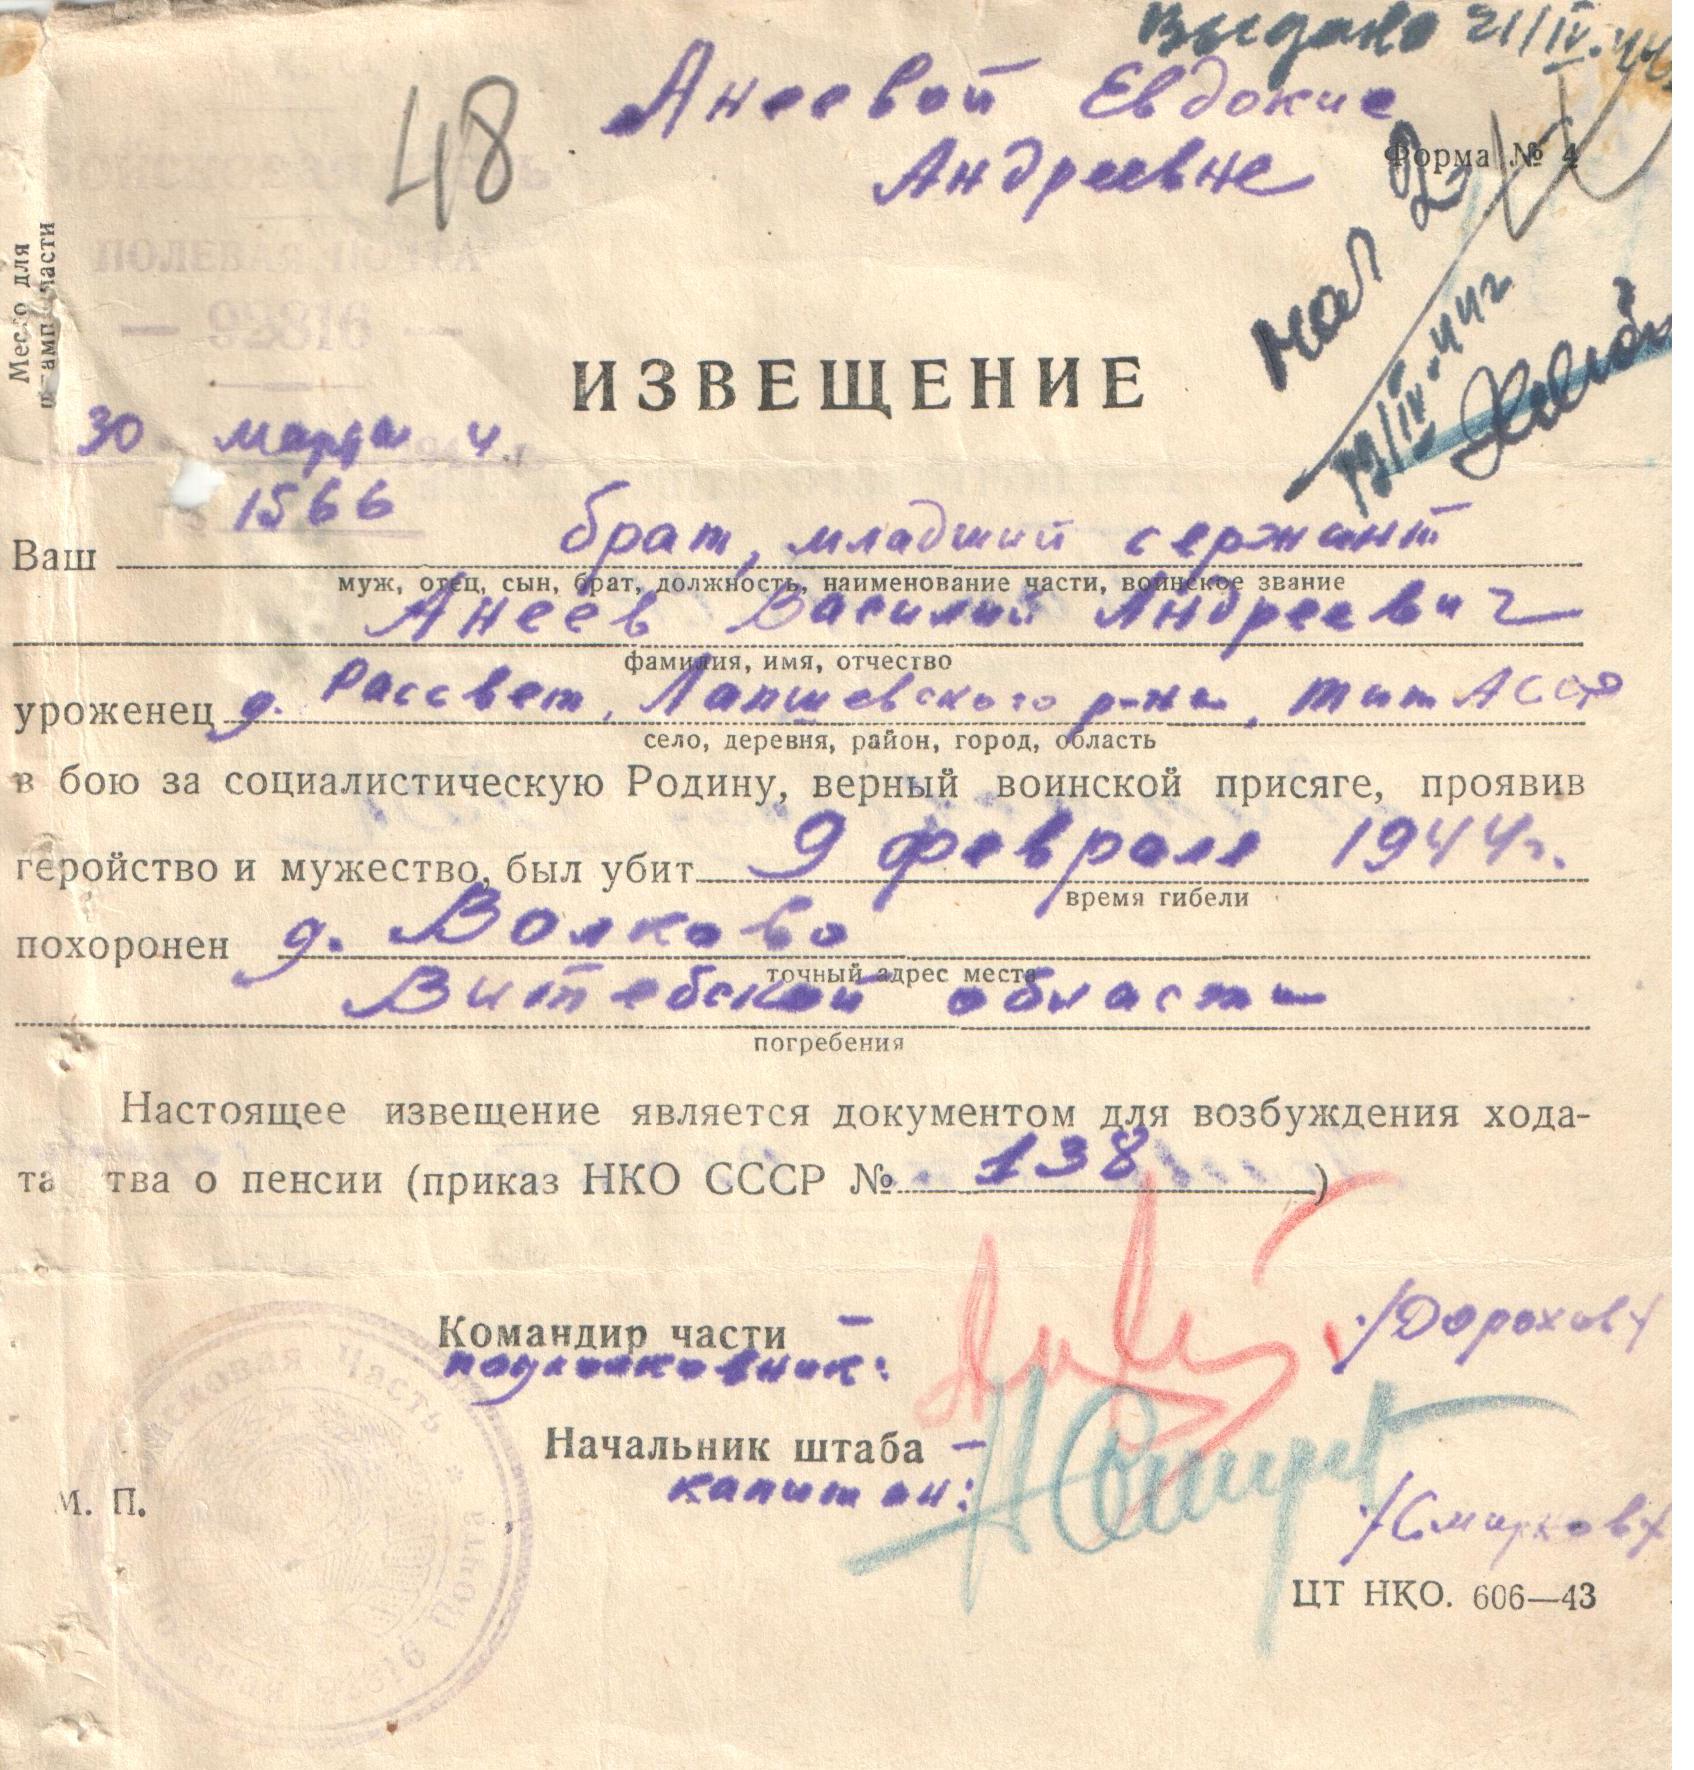 Выдано 21/IV.44
48
Анеевой Евдокие
Андреевне
Форма № 4
Место для
штампа части
ПОЛЕВАЯ ПОЧТА
— 92816 —
ИЗВЕЩЕНИЕ
30 марта 4
1566
Ваш брат, младший сержант
муж, отец, сын, брат, должность, наименование части, воинское звание
Анеев Василий Андреевич
фамилия, имя, отчество
уроженец д. Рассвет, Лапшевского р-на, АССР
село, деревня, район, город, область
в бою за социалистическую Родину, верный воинской присяге, проявив
геройство и мужество, был убит 9 февраля 1944 г.
время гибели
похоронен д. Волково
точный адрес места
Витебской области
погребения
Настоящее извещение является документом для возбуждения хода-
та тва о пенсии (приказ НКО СССР № 138)
Командир части —
подполковник: /Дорохов/
Начальник штаба —
капитан: /Смирнов/
М. П.
Полевая 92816 Почта
ЦТ НКО. 606—43